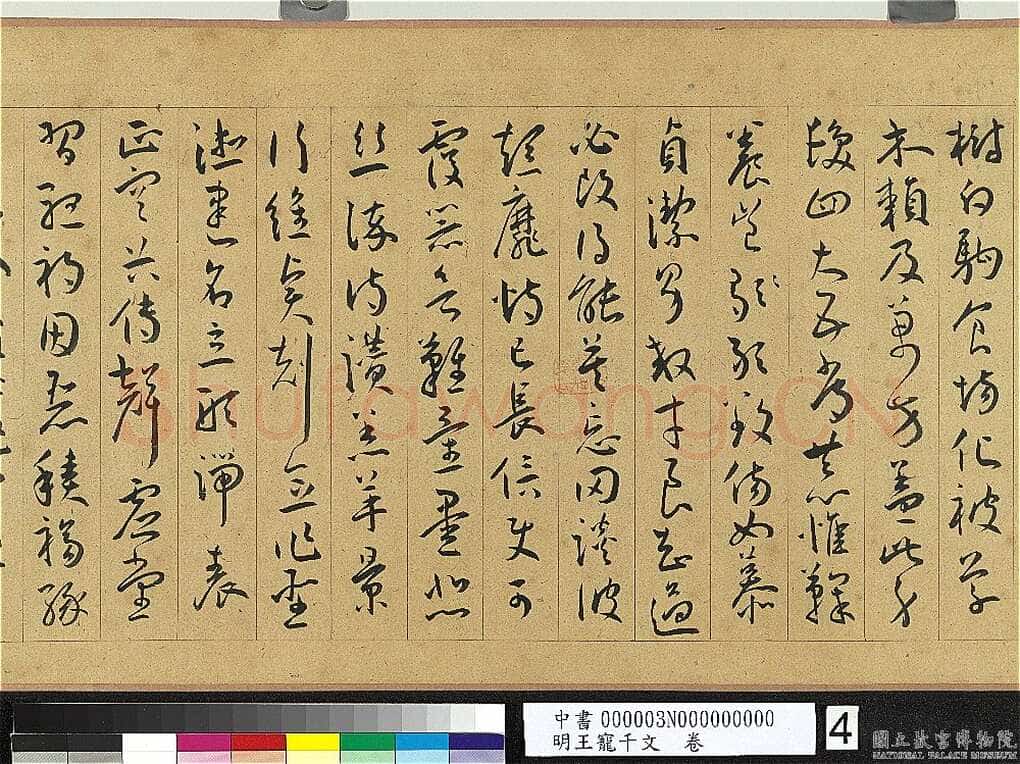 樹白駒食場化被草
木賴及萬方蓋此身
髮四大五常恭惟鞠
養豈敢毀傷女慕
貞潔男效才良知過
必改得能莫忘罔談彼
短靡恃己長信使可
覆器欲難量墨悲
絲染詩讚羔羊景
行維賢剋念作聖
德建名立形端表
正空谷傳聲虛堂
習聽禍因惡積福緣
shufawang.CN
中書 000003N000000000
明王寵千文 卷
4
國立故宮博物院
NATIONAL PALACE MUSEUM